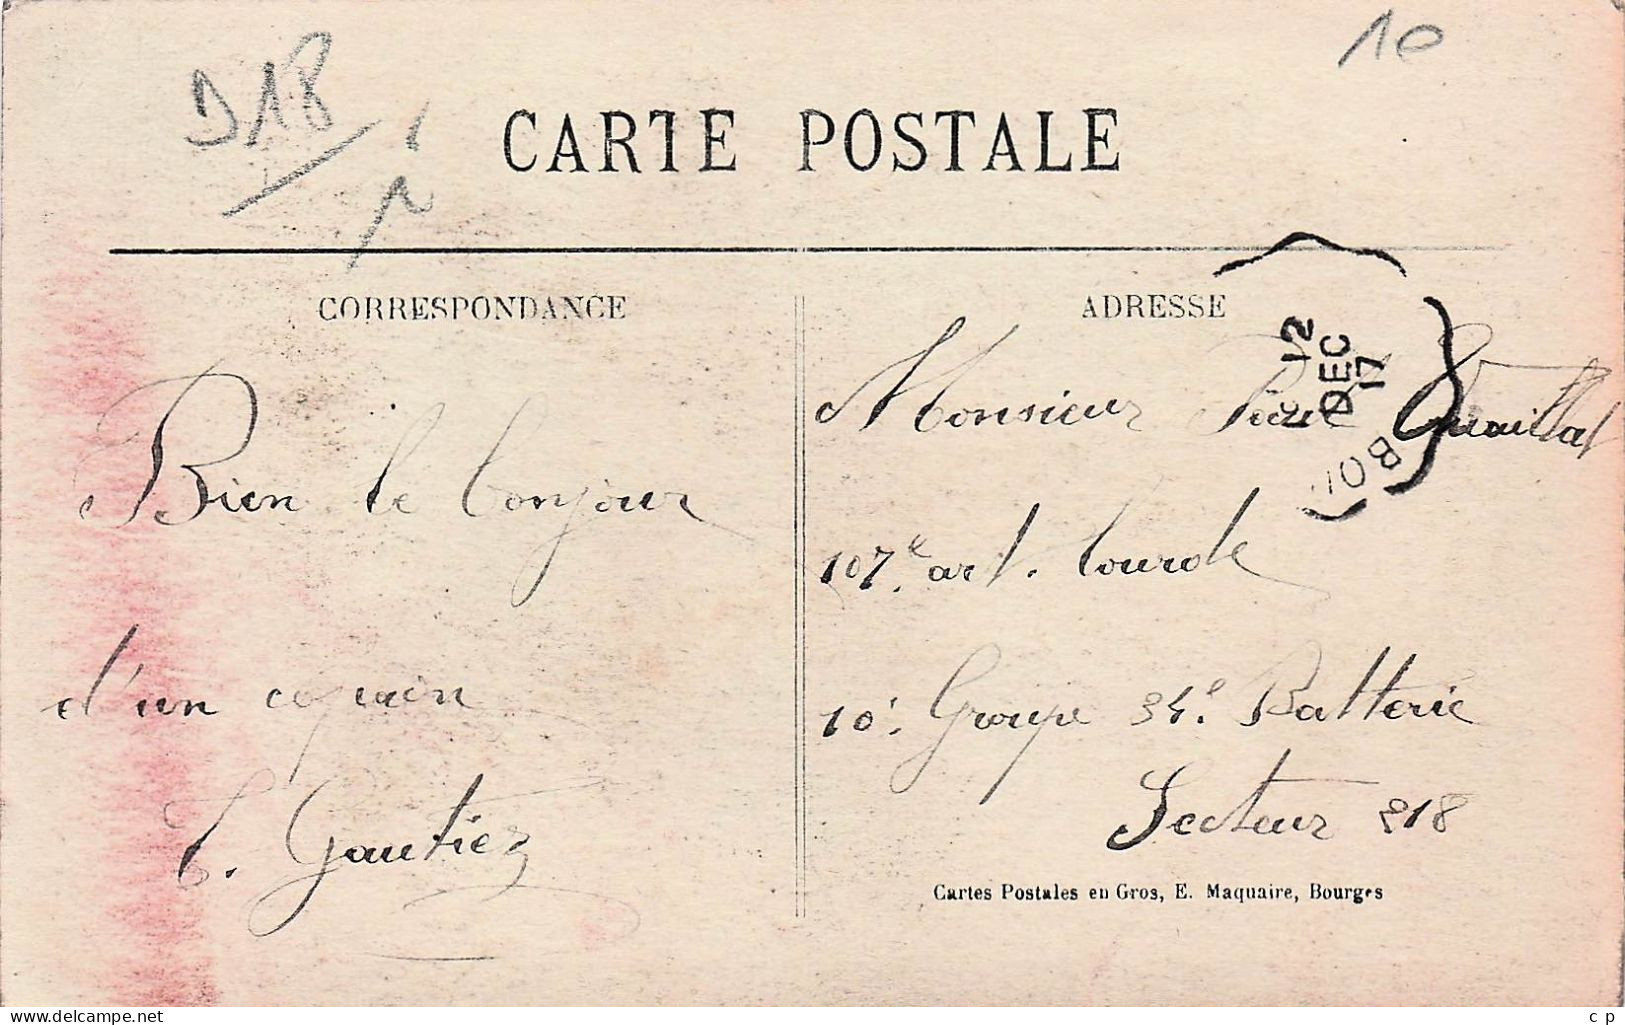 D18
10
CARTE POSTALE
CORRESPONDANCE
ADRESSE
12
DEC
17
BO
Bien le bonjour
d'un copain
Gautier
Monsieur
107e art. Lourde
10e Groupe 34e Batterie
Secteur 218
Cartes Postales en Gros, E. Maquaire, Bourges
www.delcampe.net
c p